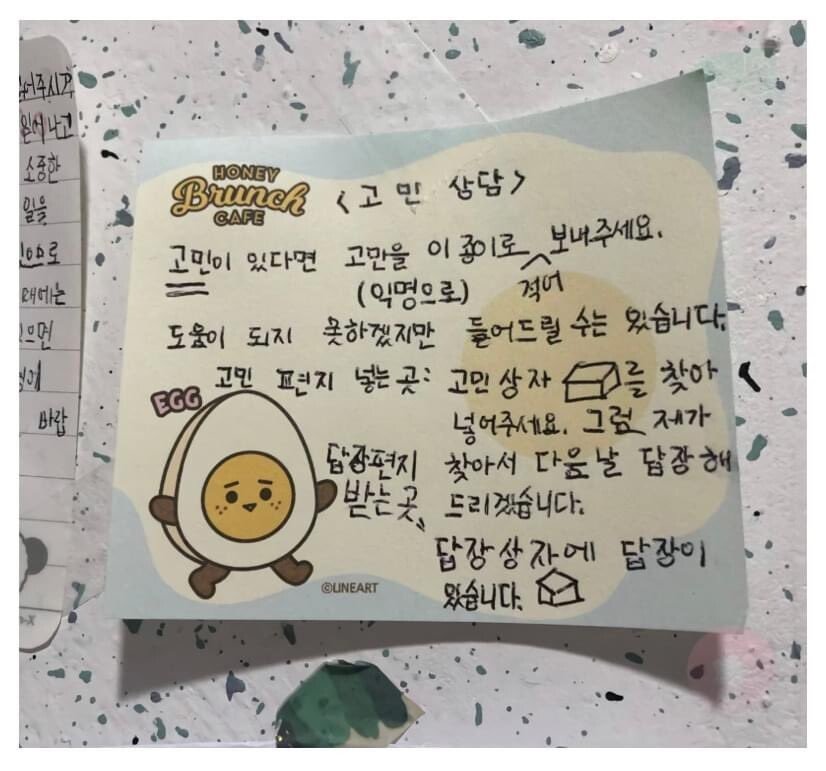 HONEY
Brunch
CAFE
<고민 상담>
고민이 있다면 고민을 이 종이로 적어 보내주세요.
(익명으로)
도움이 되지 못하겠지만 들어드릴 수는 있습니다.
고민 편지 넣는 곳: 고민상자 를 찾아
넣어주세요. 그럼 제가
찾아서 다음날 답장해
드리겠습니다.
답장편지
받는 곳:
답장상자에 답장이
있습니다.
EGG
©LINEART
소중한
일을
바랍